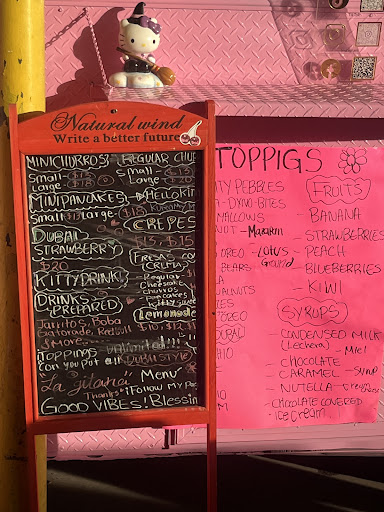 Natural wind
Write a better future
MINICHURROS! REGULAR CHU
Small-
Large $18
Small-
Large
$13
$15
MINIPANCAKES
HELLO KIT
Small $13 Large $18
CREPES
DUBAI
STRAWBERRY
$20
$13 $15
Fresas con
(CREMA)
KITTY DRINKS
Regular
Cheesecake
Churros
Pancakes
Kitty sweet
DRINKS
(PREPARED)
Lemonade
Jarritos, Boba
Gatorade, Redbull
$more...
$10, $12
Toppings UNLIMITED!!!
Can you put all DUBAI STYLE
La gitana
Menu
Thanks
¡Follow my Pa
GOOD VIBES! Blessin
TOPPIGS
TY PEBBLES
A-DYNO-BITES
MALLOWS
NUT - Mazapan
OREO - Lotus
BEARS Ground
WALNUTS
IES
OREO
DUBAI
HIO
M
FRUITS
- BANANA
- STRAWBERRIES
- PEACH
- BLUEBERRIES
- KIWI
SYRUPS
- CONDENSED MILK
(Lechera) - Miel
- CHOCOLATE
- CARAMEL - Syrup
- NUTELLA
- CHOCOLATE COVERED
- ice Cream